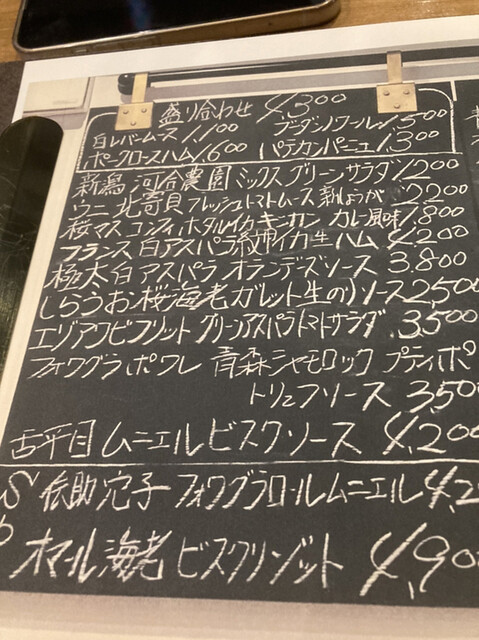 盛り合わせ 4,300
白レバームース 1,100 ブーダンノワール 1,500
ポークロースハム 1,600 パテカンパーニュ 1,300
新潟 河合農園 ミックスグリーンサラダ 1,200
ウニ 北寄貝 フレッシュトマトムース 新しょうが 2,200
桜マス コンフィ ホタルイカ キンカン カレー風味 1,800
フランス 白アスパラ 紋甲イカ 生ハム 4,200
極太白アスパラ オランデーズソース 3,800
しらうお 桜海老 ガレット 生のりソース 2,500
エゾアワビ フリット グリーンアスパラ トマトサラダ 3,500
フォワグラ ポワレ 青森シャモロック プティポ
トリュフソース 3,50
舌平目 ムニエル ビスクソース 4,200
S 伝助穴子 フォワグラロール ムニエル 4,2
オマール海老 ビスクリゾット 4,90